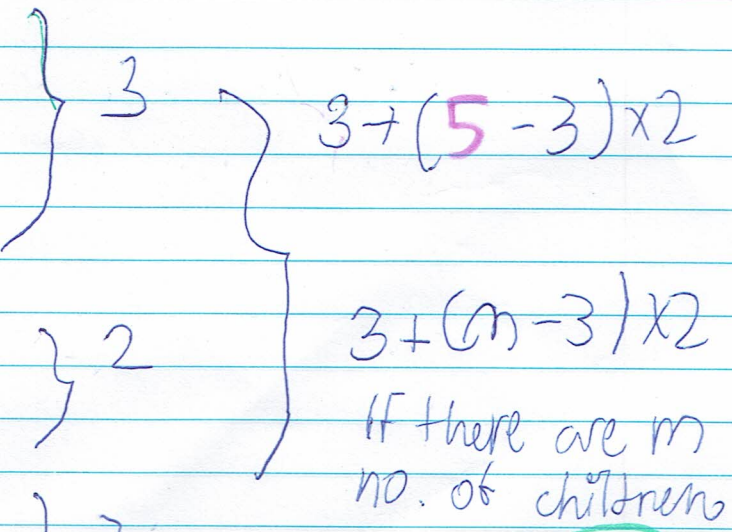 3
3+(5-3)×2
2
3+(n-3)×2
If there are n
no. of children